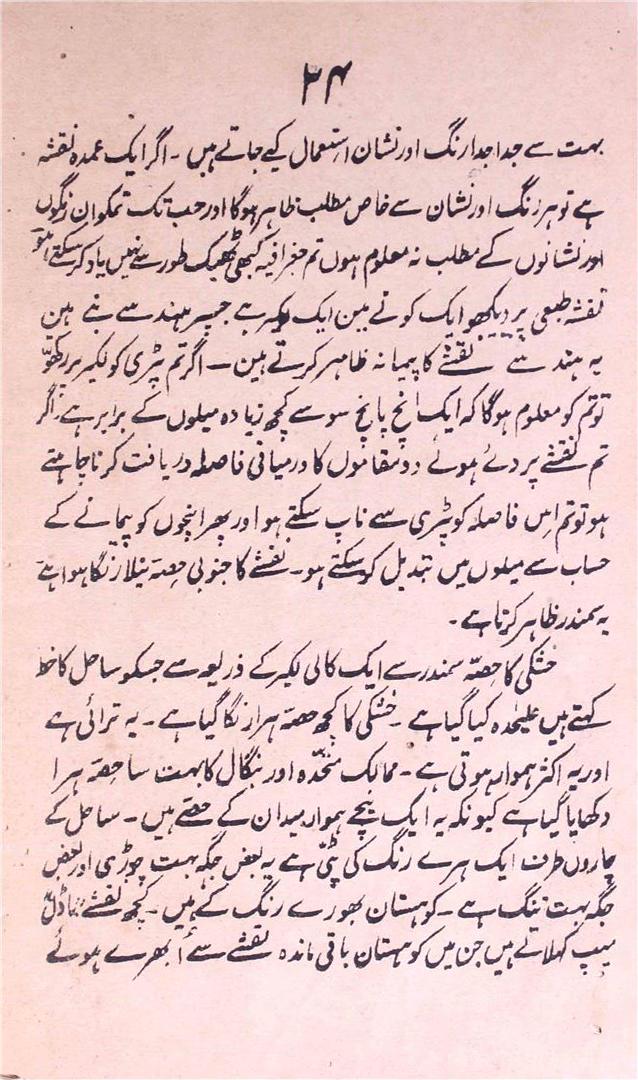 ۲۴
بہت سے جدا جدا رنگ اور نشان استعمال کیے جاتے ہیں ۔ اگر ایک عمدہ نقشہ
ہے تو ہر رنگ اور نشان سے خاص مطلب ظاہر ہوگا اور جب تک تمکو ان رنگوں
اور نشانوں کے مطلب نہ معلوم ہوں تم جغرافیہ کبھی ٹھیک طور سے نہیں یاد کر سکتے ہو
نقشہ طبعی پر دیکھو ایک کونے مین ایک لکیر ہے جسپر ہندسے بنے ہین
یہ ہندسے نقشے کا پیمانہ ظاہر کرتے ہین ۔ اگر تم پٹری کو لکیر پر رکھو
تو تم کو معلوم ہوگا کہ ایک انچ پانچ سو سے کچھ زیادہ میلوں کے برابر ہے ۔ اگر
تم نقشے پر دئے ہوئے دو مقاموں کا درمیانی فاصلہ دریافت کرنا چاہتے
ہو تو تم اس فاصلہ کو پٹری سے ناپ سکتے ہو اور پھر انچوں کو پیمانے کے
حساب سے میلوں میں تبدیل کر سکتے ہو ۔ نقشے کا جنوبی حصہ نیلا رنگا ہوا ہے
یہ سمندر ظاہر کرتا ہے ۔
خشکی کا حصہ سمندر سے ایک کالی لکیر کے ذریعہ سے جسکو ساحل کا خط
کہتے ہیں علیحدہ کیا گیا ہے ۔ خشکی کا کچھ حصہ ہرا رنگا گیا ہے ۔ یہ ترائی ہے
اور یہ اکثر ہموار ہوتی ہے ۔ ممالک متحدہ اور بنگال کا بہت سا حصہ ہرا
دکھایا گیا ہے کیونکہ یہ ایک نیچے ہموار میدان کے حصے ہیں ۔ ساحل کے
چاروں طرف ایک ہرے رنگ کی پٹی ہے یہ بعض جگہ بہت چوڑی اور بعض
جگہ بہت تنگ ہے ۔ کوہستان بھورے رنگ کے ہیں ۔ کچھ نقشے ماڈل
میپ کہلاتے ہیں جن میں کوہستان باقی ماندہ نقشے سے اُبھرے ہوئے